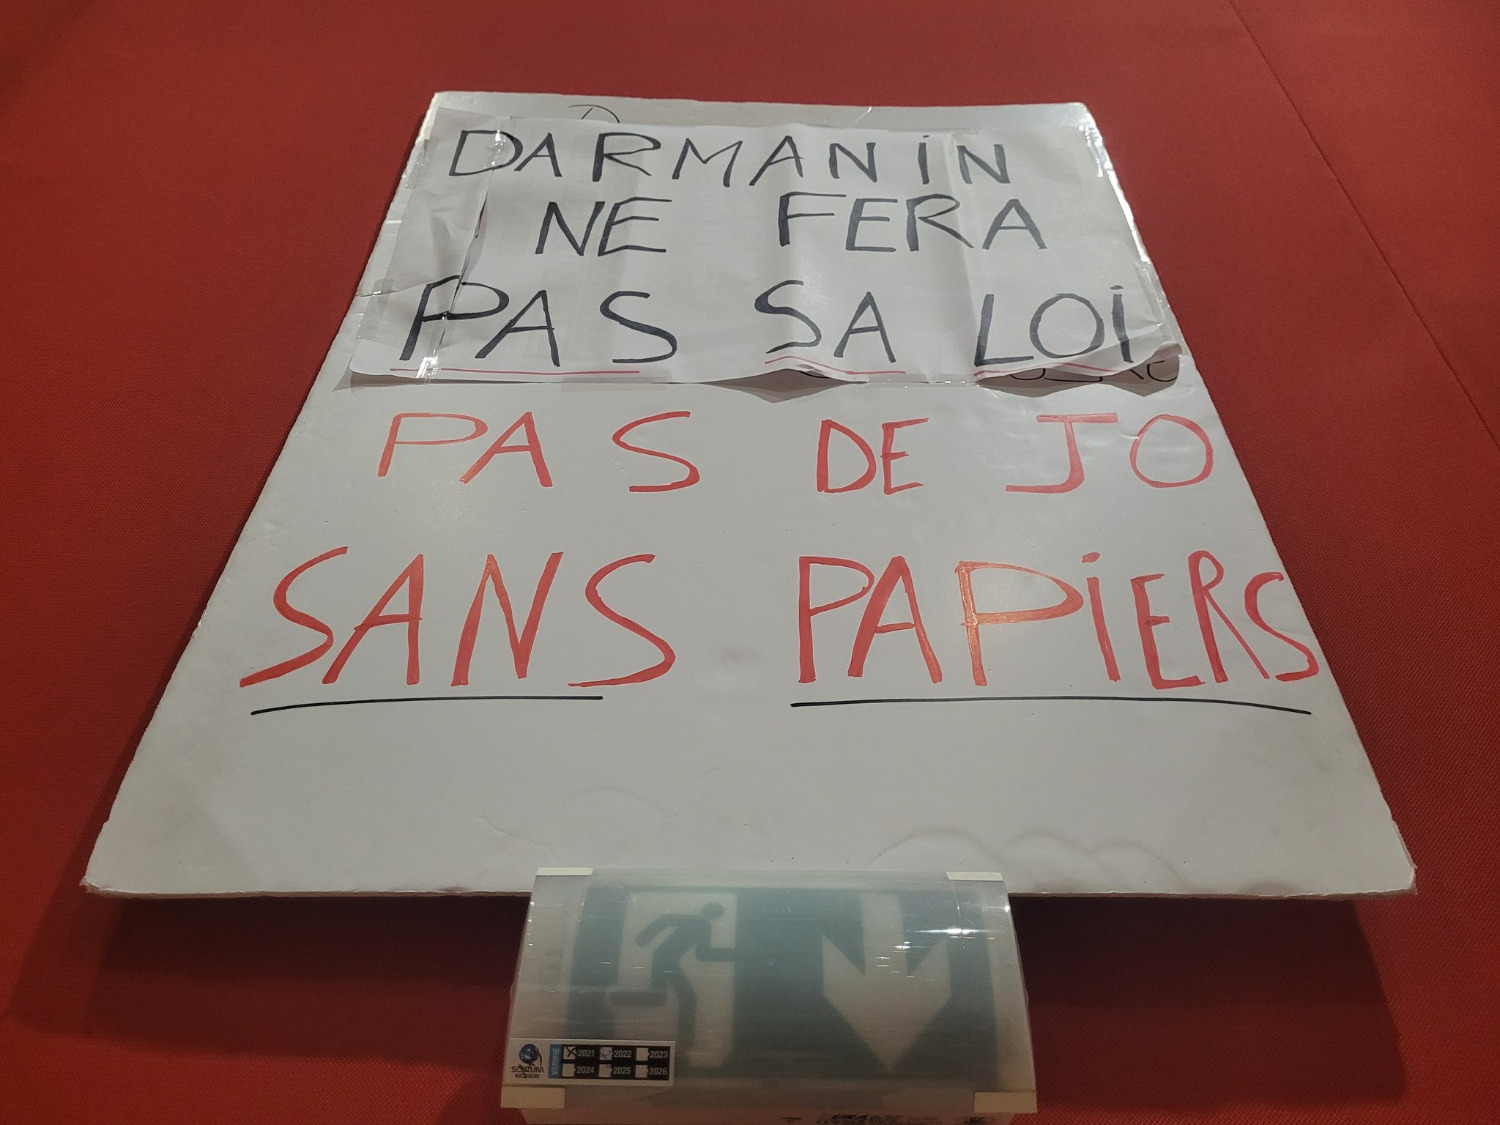 DARMANIN
NE FERA
PAS SA LOI
PAS DE JO
SANS PAPIERS
SCUTUM
VERIFIÉ
2021 2022 2023
2024 2025 2026